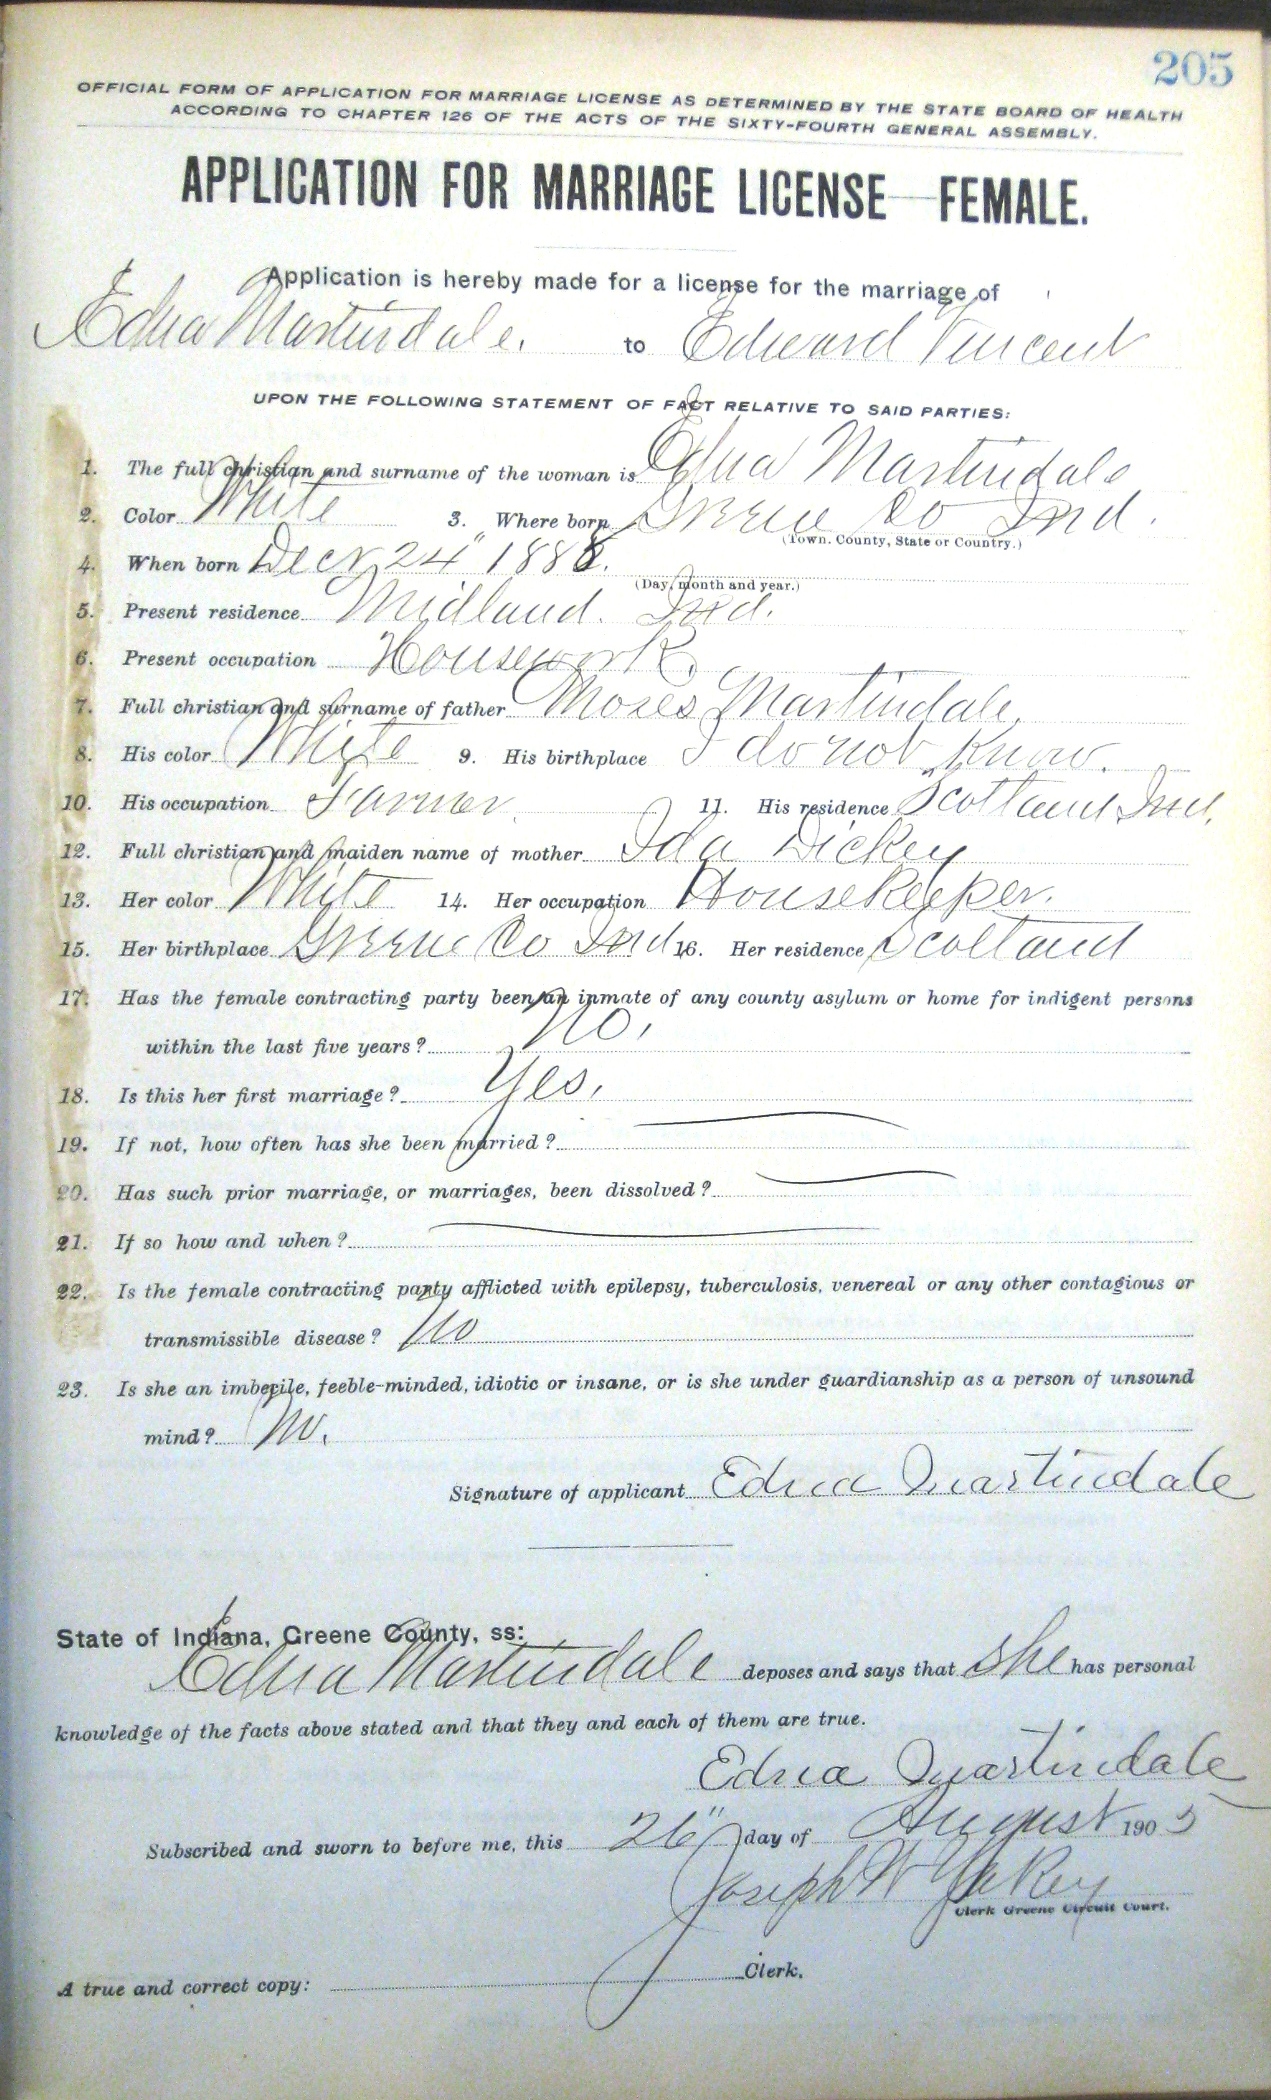 205
OFFICIAL FORM OF APPLICATION FOR MARRIAGE LICENSE AS DETERMINED BY THE STATE BOARD OF HEALTH
ACCORDING TO CHAPTER 126 OF THE ACTS OF THE SIXTY-FOURTH GENERAL ASSEMBLY.
APPLICATION FOR MARRIAGE LICENSE—FEMALE.
Application is hereby made for a license for the marriage of
Edna Martindale. to Edward Vincent
UPON THE FOLLOWING STATEMENT OF FACT RELATIVE TO SAID PARTIES:
1. The full christian and surname of the woman is Edna Martindale
2. Color White 3. Where born Greene Co Ind.
(Town. County, State or Country.)
4. When born Decr 24" 1888.
(Day, month and year.)
5. Present residence Midland. Ind.
6. Present occupation Housework.
7. Full christian and surname of father Moses Martindale.
8. His color White 9. His birthplace I do not know.
10. His occupation Farmer. 11. His residence Scotland Ind.
12. Full christian and maiden name of mother Ida Dickey
13. Her color White 14. Her occupation Housekeeper.
15. Her birthplace Greene Co Ind 16. Her residence Scotland
17. Has the female contracting party been an inmate of any county asylum or home for indigent persons
within the last five years? No.
18. Is this her first marriage? Yes.
19. If not, how often has she been married?
20. Has such prior marriage, or marriages, been dissolved?
21. If so how and when?
22. Is the female contracting party afflicted with epilepsy, tuberculosis, venereal or any other contagious or
transmissible disease? No
23. Is she an imbecile, feeble-minded, idiotic or insane, or is she under guardianship as a person of unsound
mind? No.
Signature of applicant Edna Martindale
State of Indiana, Greene County, ss:
Edna Martindale deposes and says that she has personal
knowledge of the facts above stated and that they and each of them are true.
Edna Martindale
Subscribed and sworn to before me, this 26" day of August 1905
Joseph W Yakey
Clerk Greene Circuit Court.
A true and correct copy: Clerk.